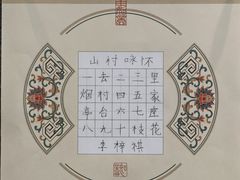 山村咏怀
一去二三里
烟村四五家
亭台六七座
八九十枝花
李梓祺